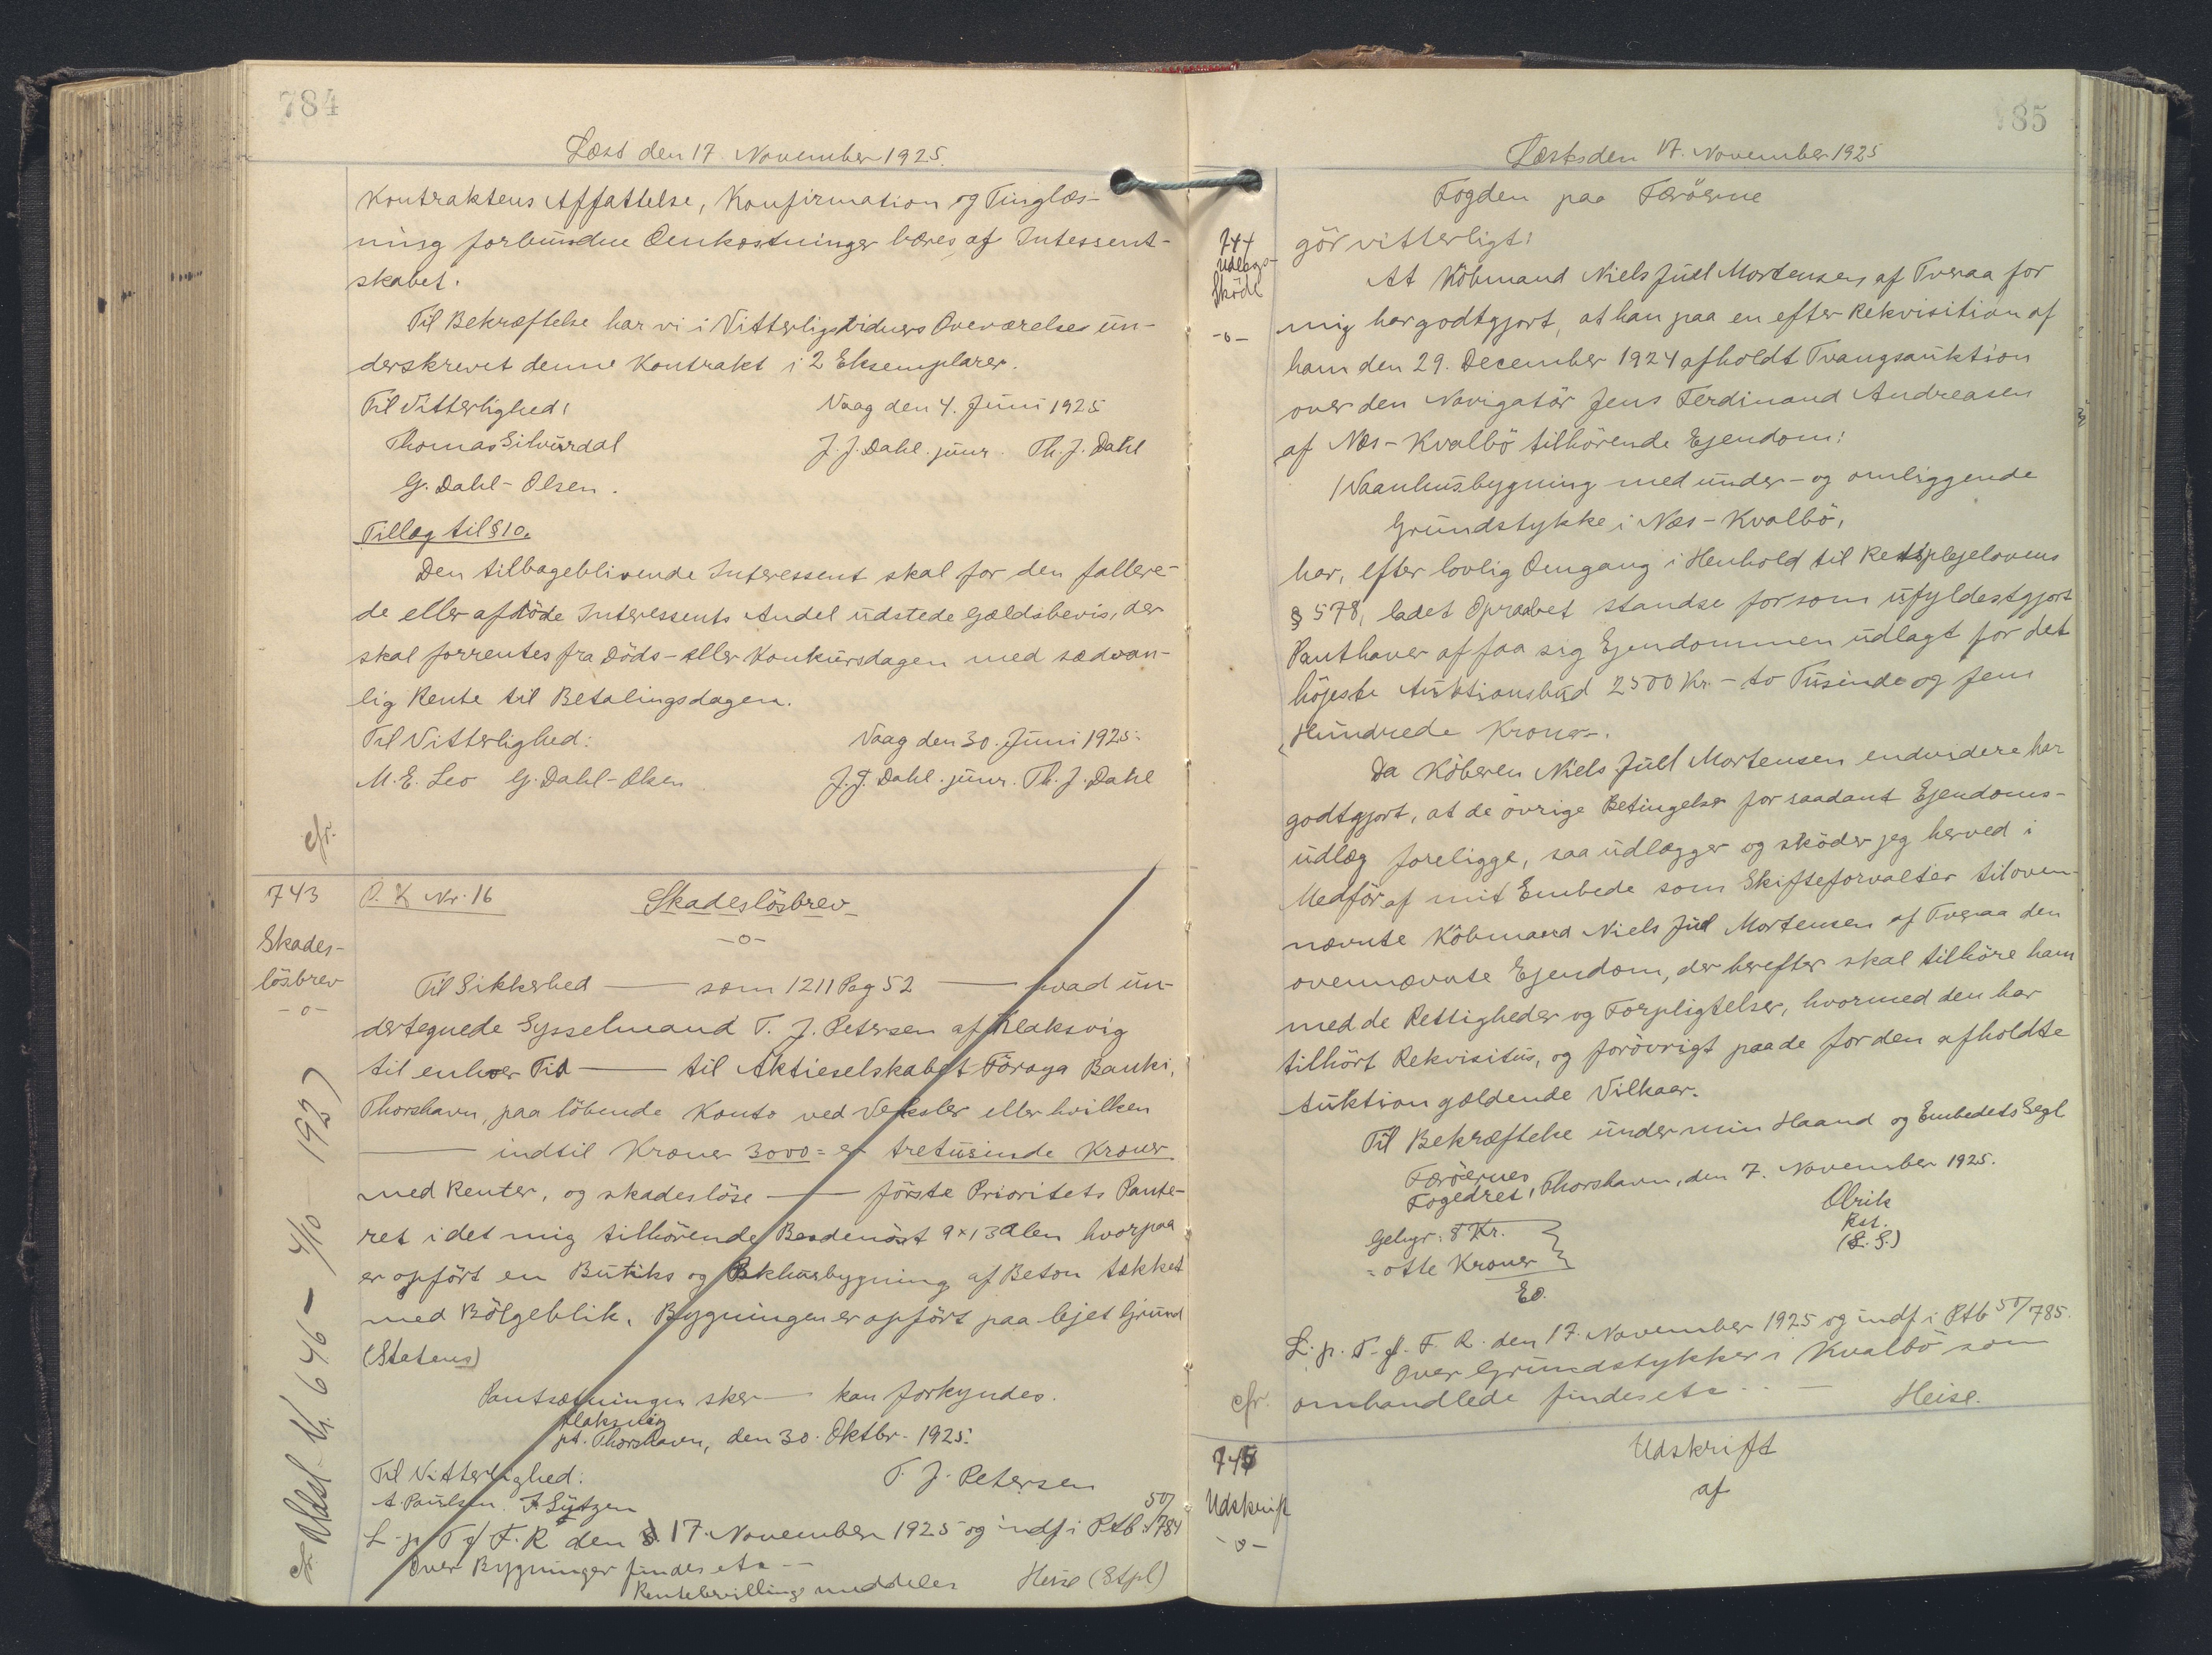 784
Læst den 17 November 1925.
Kontraktens Affattelse, Konfirmation og Tinglæs-
ning forbundne Omkostninger bæres af Intessent-
skabet.
Til Bekræftelse har vi i Vitterligvidners Overværelse un-
derskrevet denne Kontrakt i 2 Eksemplarer.
Til Vitterlighed: Vaag den 4. Juni 1925
Thomas Silvurdal J. J. Dahl. junr. Th. J. Dahl
G. Dahl-Olsen.
Tillæg til §10.
Den tilbageblivende Interessent skal for den fallere-
de eller afdöde Interessents Andel udstede Gældsbevis, der
skal forrentes fra Döds- eller Konkursdagen med sædvan-
lig Rente til Betalingsdagen.
Til Vitterlighed: Vaag den 30. Juni 1925.
M. E. Leo G. Dahl-Olsen J. J. Dahl. junr. Th. J. Dahl
cfr.
743 O. K Nr. 16 Skadeslösbrev
Skades-
lösbrev
-o-
-o-
Til Sikkerhed — som 1211 Pag 52 — hvad un-
dertegnede Sysselmand T. J. Petersen af Klaksvig
til enhver Tid — til Aktieselskabet Föroya Banki,
Thorshavn, paa löbende Konto ved Veksler eller hvilken
— indtil Kroner 3000 = er tretusinde Kroner
med Renter, og skadeslöse — förste Prioritets Pante-
ret i det mig tilhörende Baadenöst 9×13 Alen hvorpaa
er opfört en Butiks og Pakhusbygning af Beton tækket
med Bölgeblik. Bygningen er opfört paa lejet Grund
(Statens)
Pantsætningen sker — kan forkyndes.
Klaksvig
pt. Thorshavn, den 30. Oktbr. 1925.
Til Vitterlighed: T. J. Petersen
A. Paulsen. F. Lützen
L. p. T f F. R den 17. November 1925 og indf i Ptb. 50/784
Over Bygninger findes etc —
Rentebevilling meddeles Heise (Stpl)
cfr. Udsl. Nr. 646 — 4/10 — 1927
785
Læst den 17. November 1925
Fogden paa Færöerne
744
Udlægs-
Sköde
-o-
gör vitterligt:
At Köbmand Niels Juel Mortensen af Tveraa for
mig har godtgjort, at han paa en efter Rekvisition af
ham den 29. December 1924 afholdt Tvangsauktion
over den Navigatör Jens Ferdinand Andreasen
af Næs-Kvalbö tilhörende Ejendom:
1 Vaanhusbygning med under- og omliggende
Grundstykke i Næs-Kvalbö,
har, efter lovlig Omgang i Henhold til Retsplejelovens
§ 578, ladet Opraabet standse for som ufyldestgjort
Panthaver af faa sig Ejendommen udlagt for det
höjeste Auktionsbud 2500 Kr. - to Tusinde og fem
Hundrede Kroner-.
Da Köberen Niels Juel Mortensen endvidere har
godtgjort, at de övrige Betingelser for saadant Ejendoms-
udlæg foreligge, saa udlægger og sköder jeg herved i
Medför af mit Embede som Skifteforvalter til oven-
nævnte Köbmand Niels Juel Mortensen af Tveraa den
ovennævnte Ejendom, der herefter skal tilhöre ham
med de Rettigheder og Forpligtelser, hvormed den har
tilhört Rekvisitus, og forövrigt paa de for den afholdte
Auktion gældende Vilkaar.
Til Bekræftelse under min Haand og Embedets Segl
Færöernes
Fogedret, Thorshavn, den 7. November 1925.
Olrik
Kst.
(L. S.)
Gebyr: 8 Kr.
= otte Kroner
Eo.
L. p. T. f. F. R. den 17. November 1925 og indf i Ptb 50/785.
Over Grundstykker i Kvalbö som
cfr. omhandlede findes etc. — Heise.
745
Udskrift
-o-
Udskrift
af